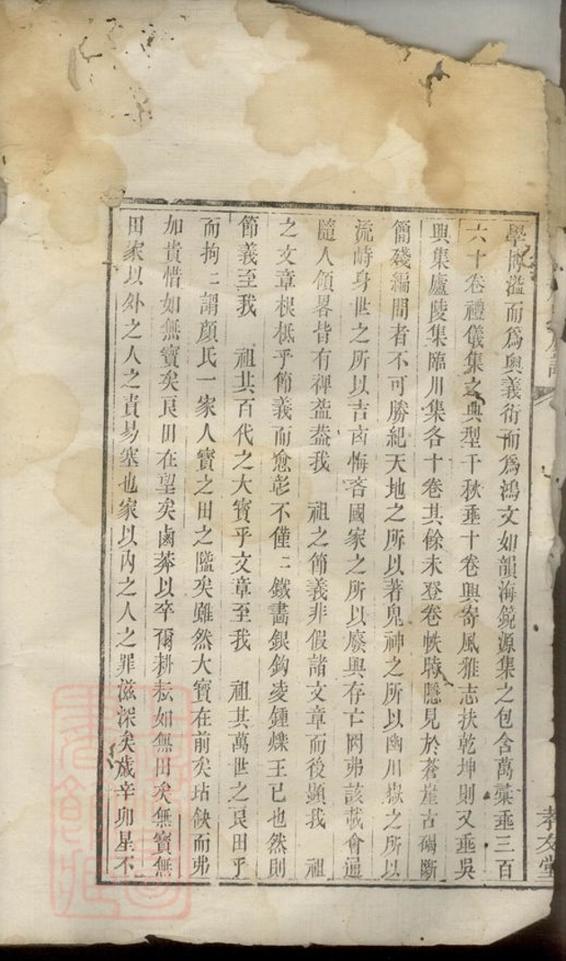 學博溢而為奧義衍而為鴻文如韻海鏡源集之包含萬彙垂三百
六十卷禮儀集之典型千秋垂十卷興寄風雅志扶乾坤則又垂吳
興集廬陵集臨川集各十卷其餘未登卷帙時隱見於蒼崖古碣斷
簡殘編間者不可勝紀天地之所以著鬼神之所以幽川嶽之所以
流峙身世之所以吉凶悔吝國家之所以廢興存亡罔弗該載會通
隨人領畧皆有裨益葢我　祖之節義非假諸文章而後顯我　祖
之文章根柢乎節義而愈彰不僅二鐵畵銀鈎凌鍾爍王已也然則
節義至我　祖其百代之大寳乎文章至我　祖其萬世之良田乎
而拘二謂顏氏一家人寳之田之隘矣雖然大寳在前矣玷缺而弗
加貴惜如無寳矣良田在望矣鹵莽以卒爾耕耘如無田矣無寳無
田家以外之人之責易塞也家以內之人之罪滋深矣歲辛卯星不
孝友堂